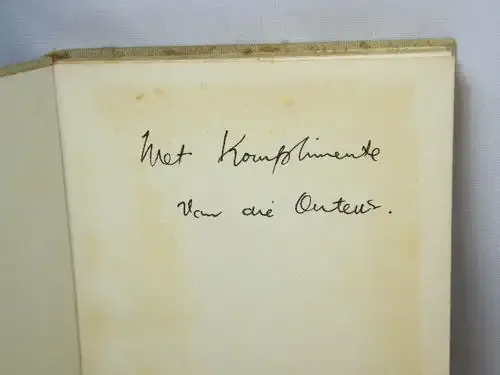 Met Komplimente
van die Outeur.